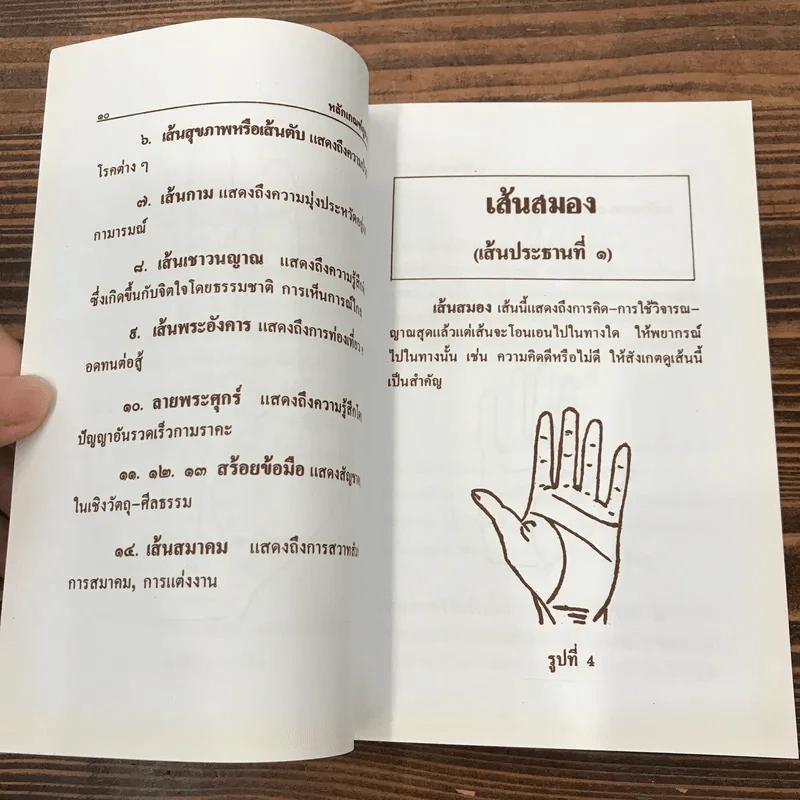 ๑๐
๖. เส้นสุขภาพหรือเส้นตับ แสดงถึง
โรคต่าง ๆ
๗. เส้นกาม แสดงถึงความมุ่งประหวัด
กามารมณ์
๘. เส้นเชาวนญาณ แสดงถึงความรู้สึก
ซึ่งเกิดขึ้นกับจิตใจโดยธรรมชาติ การเห็นการณ์ไกล
๙. เส้นพระอังคาร แสดงถึงการท่องเที่ยว
อดทนต่อสู้
๑๐. ลายพระศุกร์ แสดงถึงความรู้สึก
ปัญญาอันรวดเร็วกามราคะ
๑๑. ๑๒. ๑๓ สร้อยข้อมือ แสดง
ในเชิงวัตถุ-ศีลธรรม
๑๔. เส้นสมาคม แสดงถึงการ
การสมาคม, การแต่งงาน
เส้นสมอง
(เส้นประธานที่ ๑)
เส้นสมอง เส้นนี้แสดงถึงการคิด-การใช้วิจารณ-
ญาณสุดแล้วแต่เส้นจะโอนเอนไปในทางใด ให้พยากรณ์
ไปในทางนั้น เช่น ความคิดดีหรือไม่ดี ให้สังเกตดูเส้นนี้
เป็นสำคัญ
รูปที่ 4